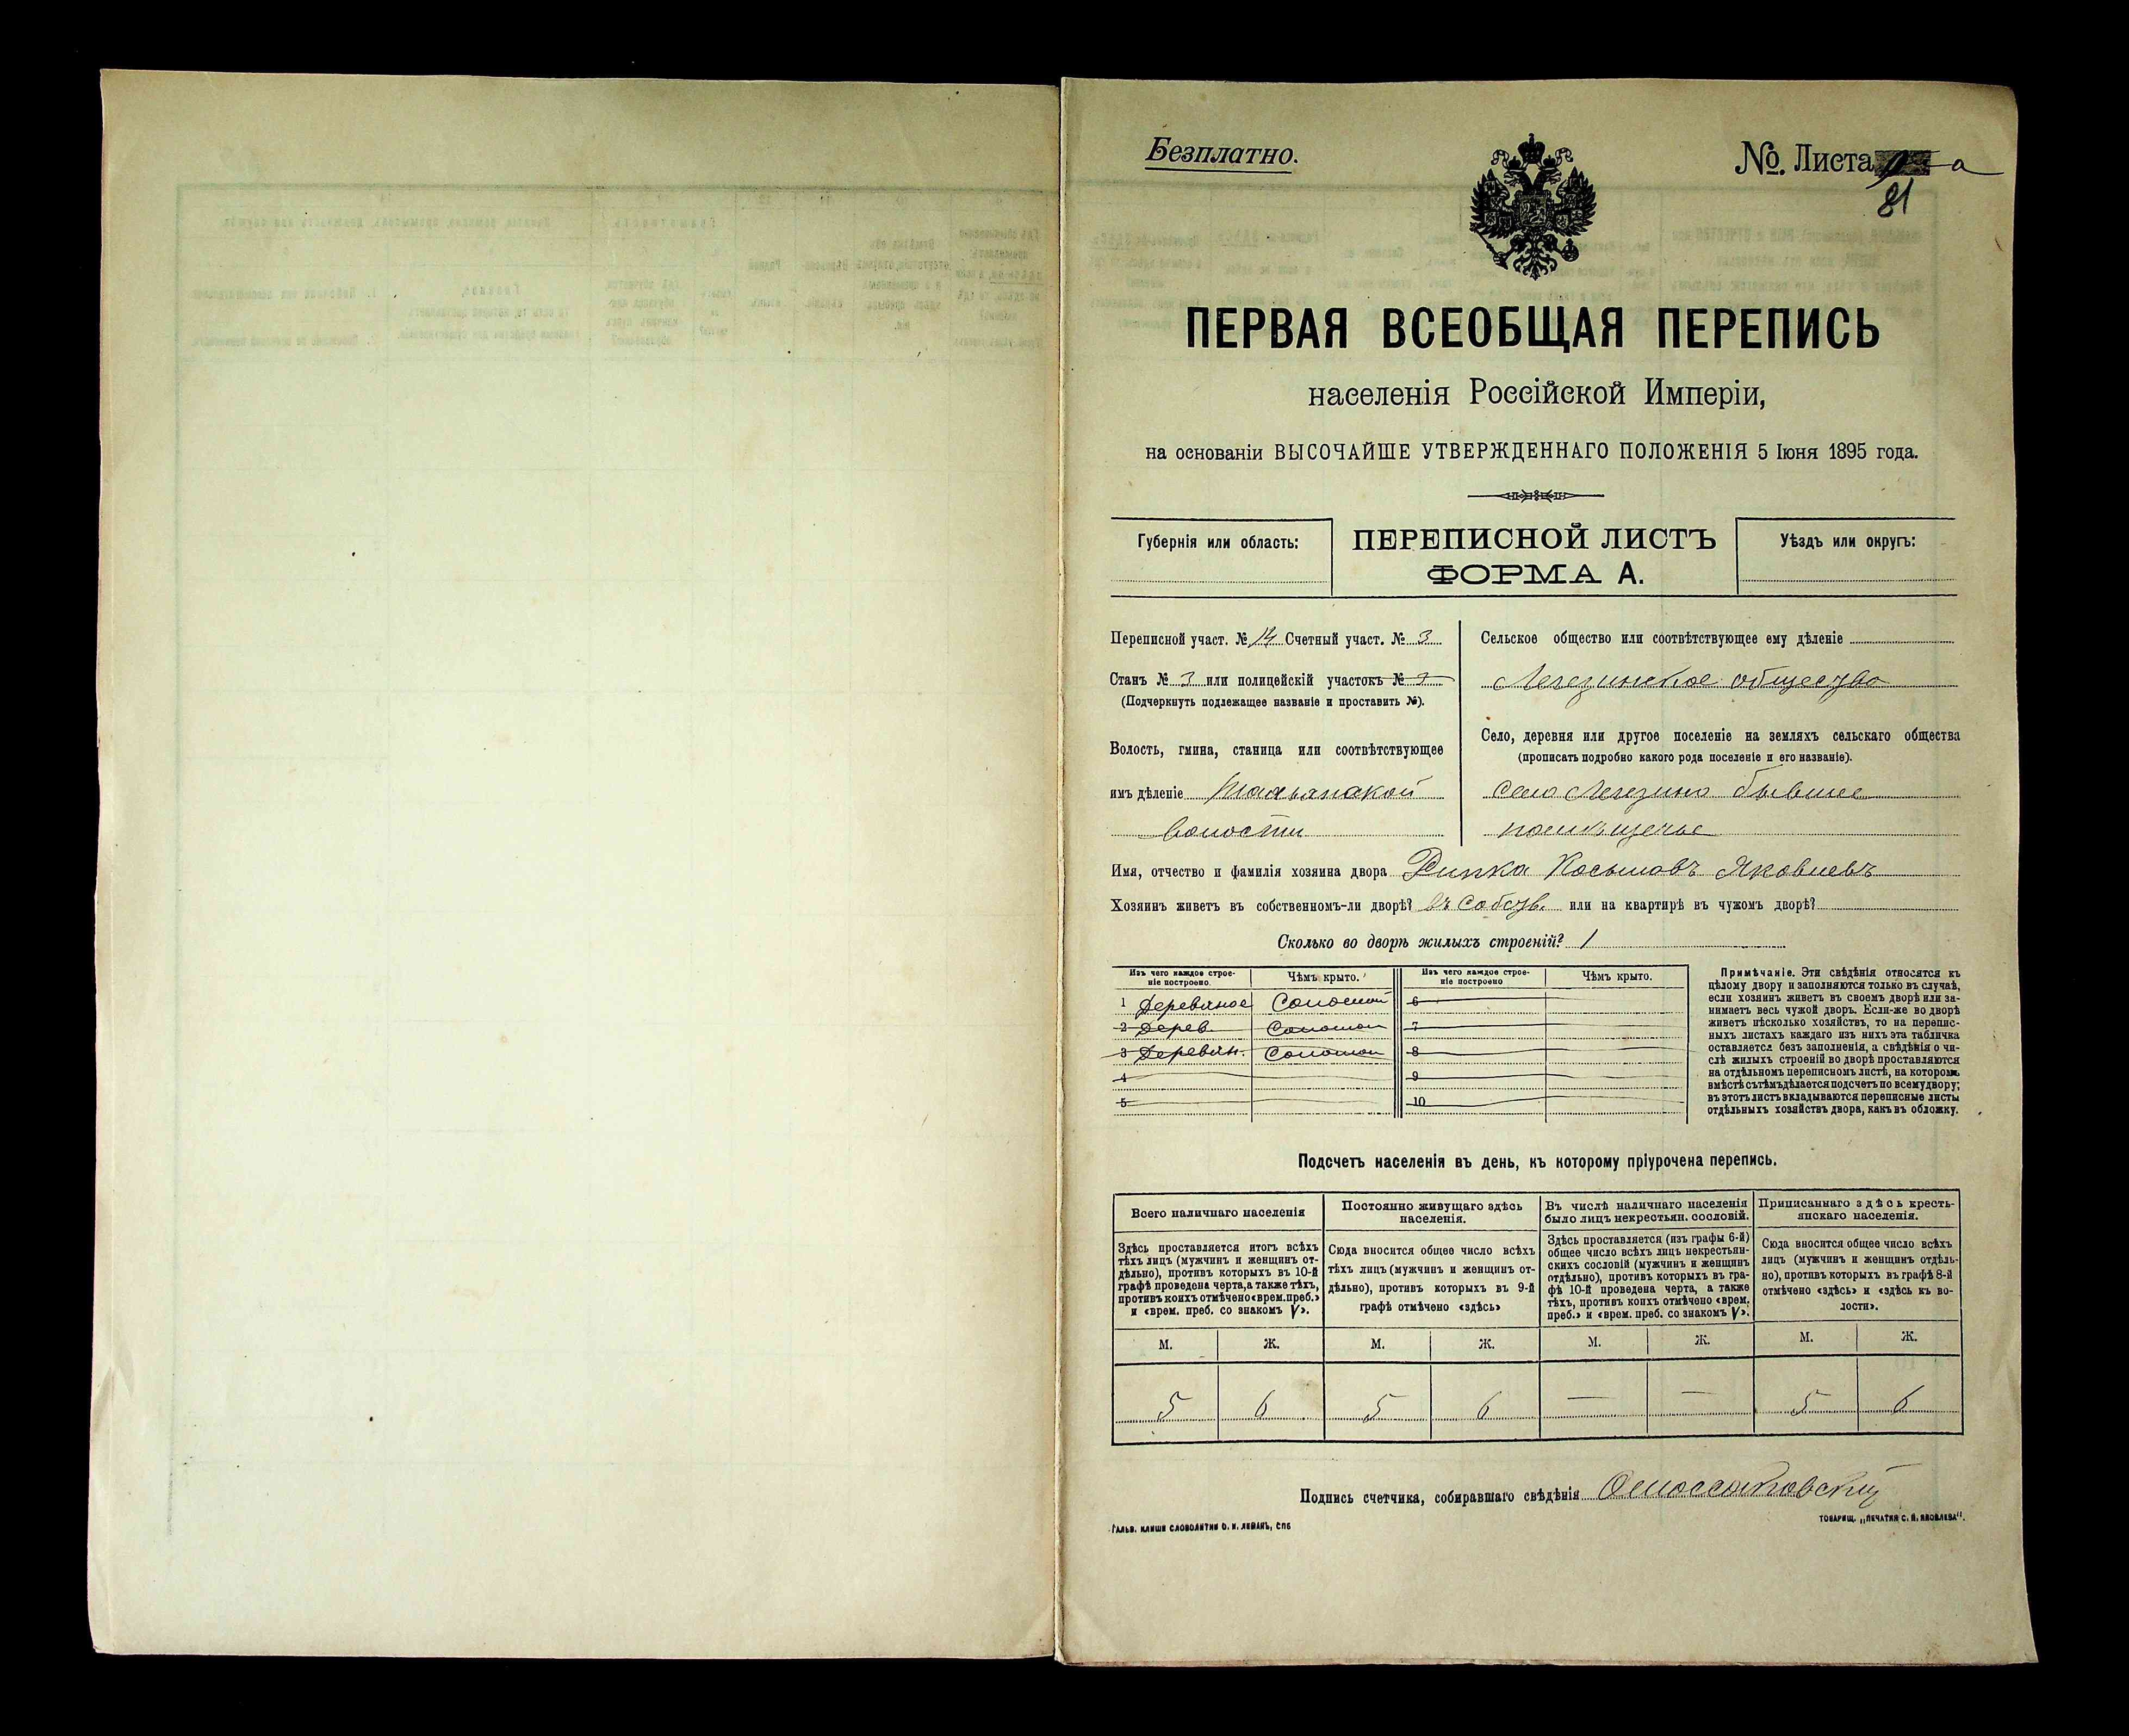 Безплатно.
№. Листа а
81
ПЕРВАЯ ВСЕОБЩАЯ ПЕРЕПИСЬ
населенія Россійской Имперіи,
на основаніи ВЫСОЧАЙШЕ УТВЕРЖДЕННАГО ПОЛОЖЕНІЯ 5 Іюня 1895 года.
Губернія или область:
ПЕРЕПИСНОЙ ЛИСТЪ
ФОРМА А.
Уѣздъ или округъ:
Переписной участ. № 14 Счетный участ. № 3
Станъ № 3 или полицейскій участокъ №
(Подчеркнуть подлежащее названіе и проставить №).
Волость, гмина, станица или соотвѣтствующее
имъ дѣленіе
волости
Сельское общество или соотвѣтствующее ему дѣленіе
Легезинское общество
Село, деревня или другое поселеніе на земляхъ сельскаго общества
(прописать подробно какого рода поселеніе и его названіе).
Село Легезино бывшее
помѣщичье
Имя, отчество и фамилія хозяина двора Яковлевъ
Хозяинъ живетъ въ собственномъ-ли дворѣ? въ собств. или на квартирѣ въ чужомъ дворѣ?
Сколько во дворѣ жилыхъ строеній? 1
Изъ чего каждое строе-
ніе построено.
Чѣмъ крыто.
Изъ чего каждое строе-
ніе построено
Чѣмъ крыто.
1 Деревяное Соломой 6
2 Дерев. Соломой 7
3 Деревян. Соломой 8
4 9
5 10
Примѣчаніе. Эти свѣдѣнія относятся къ
цѣлому двору и заполняются только въ случаѣ,
если хозяинъ живетъ въ своемъ дворѣ или за-
нимаетъ весь чужой дворъ. Если-же во дворѣ
живетъ нѣсколько хозяйствъ, то на перепис-
ныхъ листахъ каждаго изъ нихъ эта табличка
оставляется безъ заполненія, а свѣдѣнія о чи-
слѣ жилыхъ строеній во дворѣ проставляются
на отдѣльномъ переписномъ листѣ, на которомъ
вмѣстѣ съ тѣмъ дѣлается подсчетъ по всему двору;
въ этотъ листъ вкладываются переписные листы
отдѣльныхъ хозяйствъ двора, какъ въ обложку.
Подсчетъ населенія въ день, къ которому пріурочена перепись.
Всего наличнаго населенія
Здѣсь проставляется итогъ всѣхъ
тѣхъ лицъ (мужчинъ и женщинъ от-
дѣльно), противъ которыхъ въ 10-й
графѣ проведена черта, а также тѣхъ,
противъ коихъ отмѣчено «врем. преб.»
и «врем. преб. со знакомъ V».
Постоянно живущаго здѣсь
населенія.
Сюда вносится общее число всѣхъ
тѣхъ лицъ (мужчинъ и женщинъ от-
дѣльно), противъ которыхъ въ 9-й
графѣ отмѣчено «здѣсь»
Въ числѣ наличнаго населенія
было лицъ некрестьян. сословій.
Здѣсь проставляется (изъ графы 6-й)
общее число всѣхъ лицъ некрестьян-
скихъ сословій (мужчинъ и женщинъ
отдѣльно), противъ которыхъ въ гра-
фѣ 10-й проведена черта, а также
тѣхъ, противъ коихъ отмѣчено «врем.
преб.» и «врем. преб. со знакомъ V».
Приписаннаго здѣсь кресть-
янскаго населенія.
Сюда вносится общее число всѣхъ
лицъ (мужчинъ и женщинъ отдѣль-
но), противъ которыхъ въ графѣ 8-й
отмѣчено «здѣсь» и «здѣсь къ во-
лости».
М. Ж. М. Ж. М. Ж. М. Ж.
5 6 5 6 — — 5 6
Подпись счетчика, собиравшаго свѣдѣнія
ГАЛЬВ. КЛИШЕ СЛОВОЛИТНИ О. И. ЛЕМАНЪ, СПБ
ТОВАРИЩ. „ПЕЧАТНЯ С. П. ЯКОВЛЕВА".